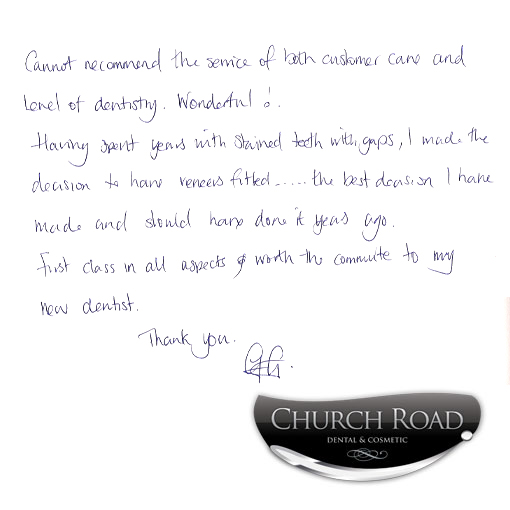 Cannot recommend the service of both customer care and
level of dentistry. Wonderful!.
Having spent years with stained teeth with gaps, I made the
decision to have veneers fitted...... the best decision I have
made and should have done it years ago.
First class in all aspects & worth the commute to my
new dentist.
Thank you.
CHURCH ROAD
DENTAL & COSMETIC